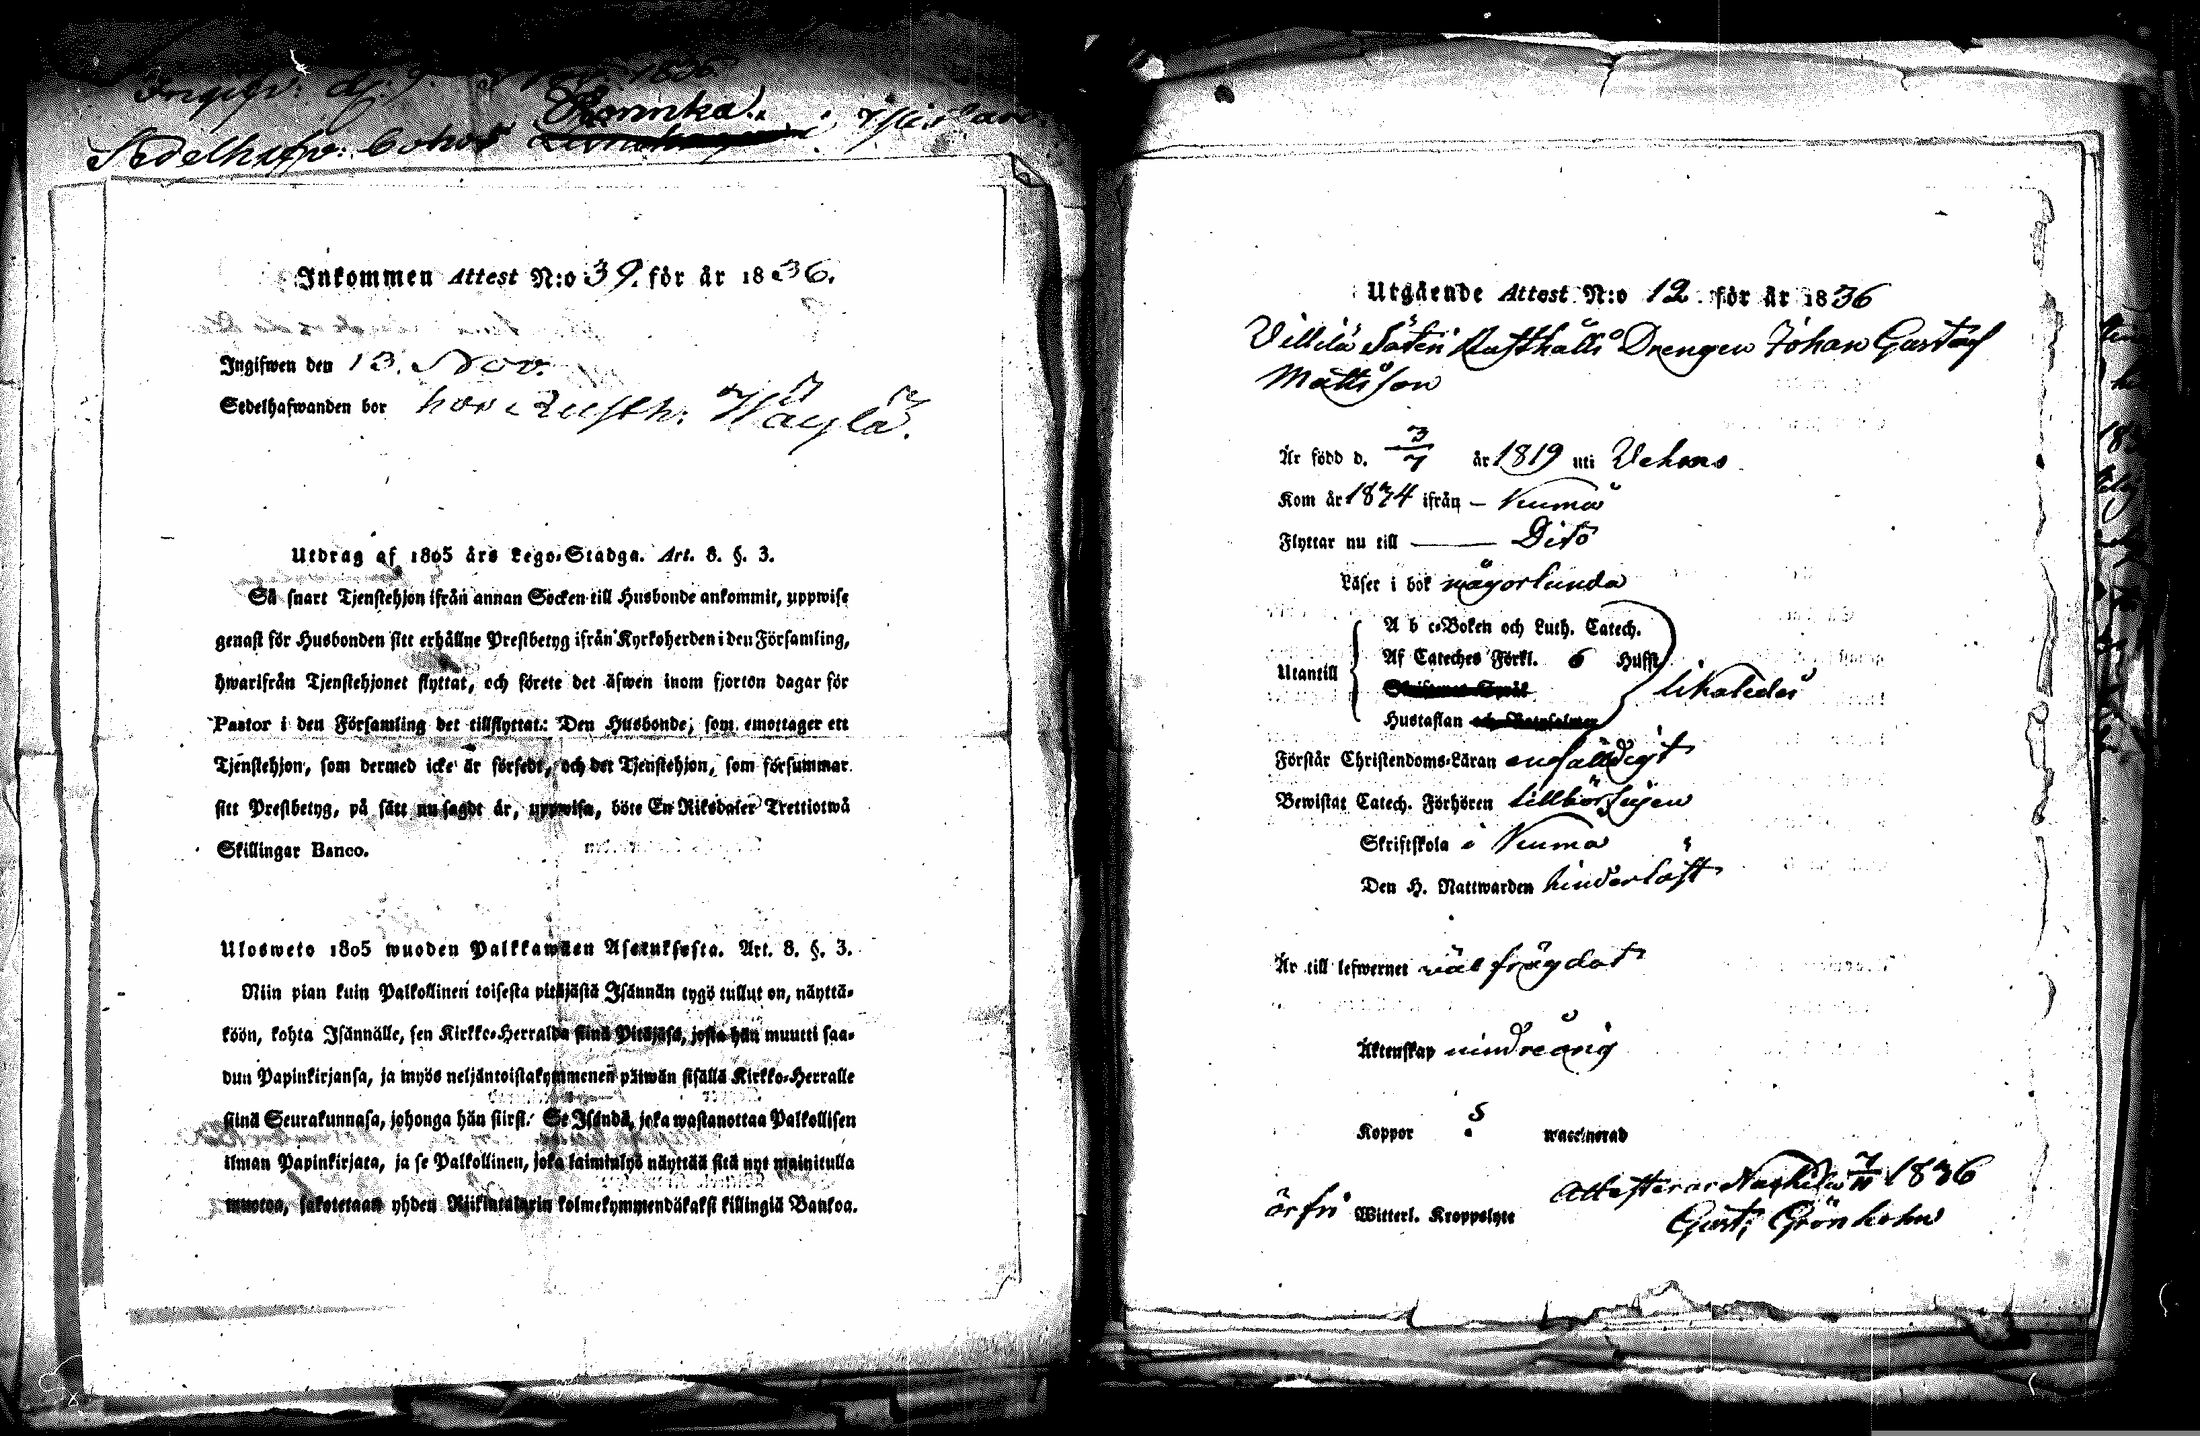 Ingifv: d. 9 Nov. 1836
Rannka.
Sedelhafv: bohor i
Inkommen Attest N:o 39. för år 1836.
Ingifwen den 13. Nov.
Sedelhafwanden bor hos Rusth: Häylä.
Utdrag af 1805 års Lego-Stadga. Art. 8. §. 3.
Så snart Tjenstehjon ifrån annan Socken till Husbonde ankommit, uppwise
genast för Husbonden sitt erhållne Prestbetyg ifrån Kyrkoherden i den Församling,
hwarifrån Tjenstehjonet flyttat, och förete det äfwen inom fjorton dagar för
Pastor i den Församling det tillflyttat: Den Husbonde, som emottager ett
Tjenstehjon, som dermed icke är försedt, och det Tjenstehjon, som försummar
sitt Prestbetyg, på sätt nu sagdt är, uppwisa, böte En Riksdaler Trettiotwå
Skillingar Banco.
Ulosweto 1805 wuoden Palkkawäen Asetuksesta. Art. 8. §. 3.
Niin pian kuin Palkollinen toisesta pitäjästä Isännän tygö tullut on, näyttä-
köön, kohta Isännälle, sen Kirkko-Herralda siinä Pitäjäsä, josta hän muutti saa-
dun Papinkirjansa, ja myös neljäntoistakymmenen päiwän sisällä Kirkko-Herralle
siinä Seurakunnasa, johonga hän siirsi. Se Isändä, joka wastanottaa Palkollisen
ilman Papinkirjata, ja se Palkollinen, joka laiminlyö näyttää sitä nyt mainitulla
muotoa, sakotetaan yhden Riikintalarin kolmekymmendäkaksi killingiä Bankoa.
Utgående Attest N:o 12 för år 1836
Villilä Säteri Rusthålls Drengen Johan Gustaf
Mattsson
Är född d. 3/7 år 1819 uti Vehmo
Kom år 1834 ifrån – Numo
Flyttar nu till — Dito
Läser i bok någorlunda
A b c-Boken och Luth. Catech.
Utantill Af Cateches Förkl. 6 Hufst likaledes
Hustaflan
Förstår Christendoms-Läran enfäldigt
Bewistat Catech. Förhören tillbörligen
Skriftskola i Numo
Den H. Nattwarden hinderlöst
Är till lefwernet väl frägdat
Äktenskap mindreårig
Koppor ? waccinerad
Attesterar Nakkila 7/11 1836
är fri Witterl. Kroppslyte
Gust: Grönholm